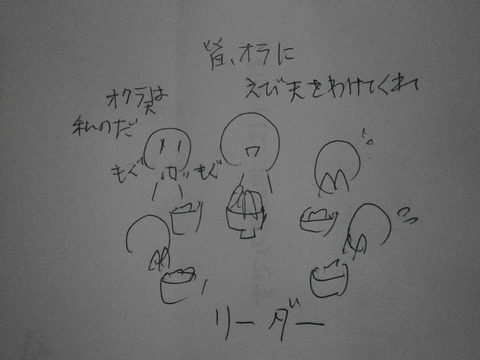 皆、オラに
えび天をわけてくれ
オクラ天は
私のだ
もぐ
もぐ
リーダー